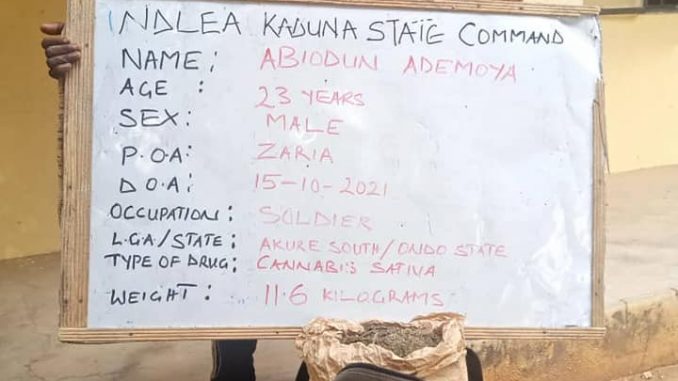 NDLEA KADUNA STATE COMMAND
NAME: ABIODUN ADEMOYA
AGE : 23 YEARS
SEX: MALE
P.O.A: ZARIA
D.O.A: 15-10-2021
OCCUPATION: SOLDIER
L.G.A/STATE: AKURE SOUTH/ONDO STATE
TYPE OF DRUG: CANNABIS SATIVA
WEIGHT: 11.6 KILOGRAMS